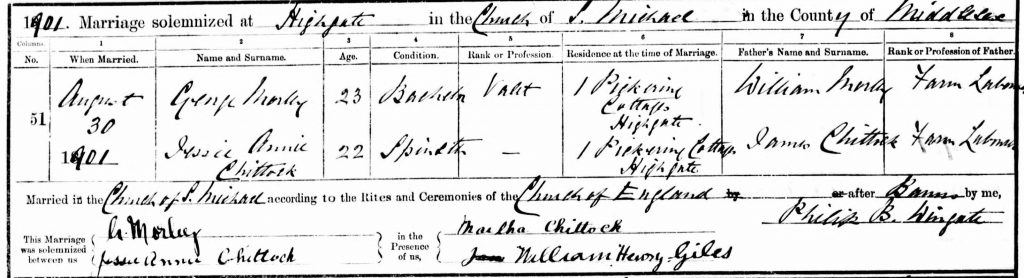 1901. Marriage solemnized at Highgate in the Church of S. Michael in the County of Middlesex
Columns. 1 2 3 4 5 6 7 8
No. When Married. Name and Surname. Age. Condition. Rank or Profession. Residence at the time of Marriage. Father's Name and Surname. Rank or Profession of Father.
51 August 30 1901 George Morley 23 Bachelor Valet 1 Pickering Cottages Highgate William Morley Farm Labourer
Jessie Annie Chittock 22 Spinster – 1 Pickering Cottages Highgate James Chittock Farm Labourer
Married in the Church of S. Michael according to the Rites and Ceremonies of the Church of England by or after Banns by me,
Philip B. Wingate
This Marriage was solemnized between us
G. Morley
Jessie Annie Chittock
in the Presence of us,
Martha Chittock
William Henry Giles